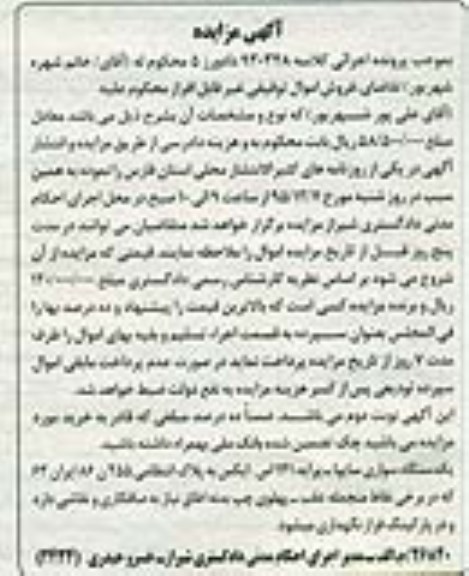 آگهی مزایده
بموجب پرونده اجرائی کلاسه ۹۴۰۳۲۸ دادورز ۵ محکوم له (آقای/ خانم شهره
شهرپور) تقاضای فروش اموال توقیفی غیر قابل افراز محکوم علیه
(آقای علی پور شهرپور) که نوع و مشخصات آن بشرح ذیل می باشد معادل
مبلغ ریال بابت محکوم به و هزینه دادرسی از طریق مزایده و انتشار
آگهی در یکی از روزنامه های کثیرالانتشار محلی استان فارس را نموده به همین
سبب در روز شنبه مورخ ۹۵/۱۲/۷ از ساعت ۹ الی ۱۰ صبح در محل اجرای احکام
مدنی دادگستری شیراز مزایده برگزار خواهد شد متقاضیان می توانند در مدت
پنج روز قبل از تاریخ مزایده اموال را ملاحظه نمایند قیمتی که مزایده از آن
شروع می شود بر اساس نظریه کارشناس رسمی دادگستری مبلغ
ریال و برنده مزایده کسی است که بالاترین قیمت را پیشنهاد و ده درصد بها را
فی المجلس بعنوان سپرده به قسمت اجراء تسلیم و بقیه بهای اموال را ظرف
مدت ۷ روز از تاریخ مزایده پرداخت نماید در صورت عدم پرداخت مابقی اموال
سپرده تودیعی پس از کسر هزینه مزایده به نفع دولت ضبط خواهد شد.
این آگهی نوبت دوم می باشد. ضمناً ده درصد مبلغی که قادر به خرید مورد
مزایده می باشید چک تضمین شده بانک ملی بهمراه داشته باشید.
یک دستگاه سواری سایپا - پراید ۱۴۱ اس ایکس به پلاک انتظامی ۲۵۵ ن ۸۶ ایران ۶۳
که در برخی نقاط منجمله عقب - پهلوی چپ بدنه اتاق نیاز به صافکاری و نقاشی دارد
و در پارکینگ فراز نگهداری میشود
۲۶۲۰/م الف - مدیر اجرای احکام مدنی دادگستری شیراز - خسرو حیدری